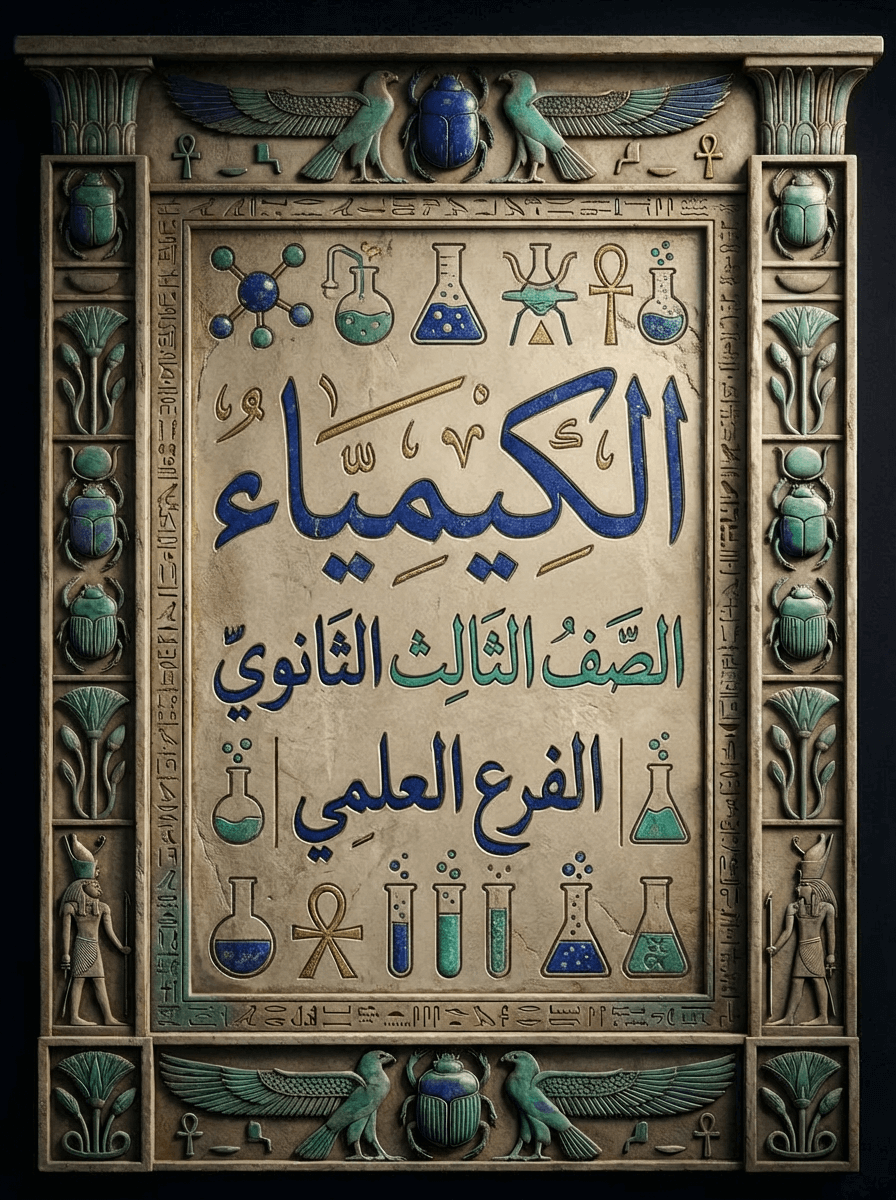 الكِيمِيَاء
الصَّفُ الثَالِث الثَانويّ
الفرع العلمِي